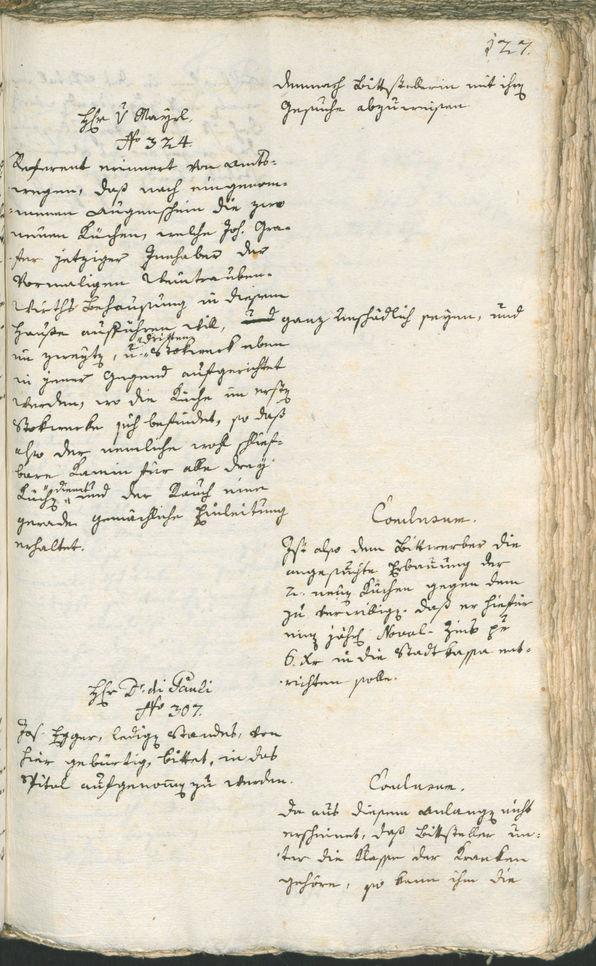 127.
demnach Bittstellerin mit ihrem
Gesuche abzuweisen
Hr v Mayrl.
No 324
Referent erinnert von Amts-
wegen, daß nach eingenom-
menen Augenschein die zwo
neuen Küchen, welche Joh. Gra-
fer jetziger Innhaber der
Vormaligen Weintrauben-
wirths Behausung in diesem
Hause aufführen will, und ganz unschädlich seyen, und
im zweyten, u. dritten Stokwerk eben
in jener Gegend aufgerichtet
werden, wo die Küche im ersten
Stokwerke sich befindet, so daß
also der nemliche wohl schlief-
bare Kamin für alle drey
Küchen dient, und der Rauch eine
gerade gemächliche Hinleitung
erhaltet.
Conclusum.
Ist also dem Bittwerber die
angesuchte Erbauung der
2. neuen Küchen gegen dem
zu bewilligen, daß er hiefür
einen jährl Noval-Zins pr
6. Xr in die Stadtkassa ent-
richten solle.
Hr Dr. di Pauli
No 307.
Jos. Egger, ledigen Standes, von
hier gebürtig, bittet, in das
Spital aufgenommen zu werden.
Conclusum.
Da aus diesem Anlangen nicht
erscheinet, daß Bittsteller un-
ter die Klasse der Kranken
gehöre, so kann ihm die